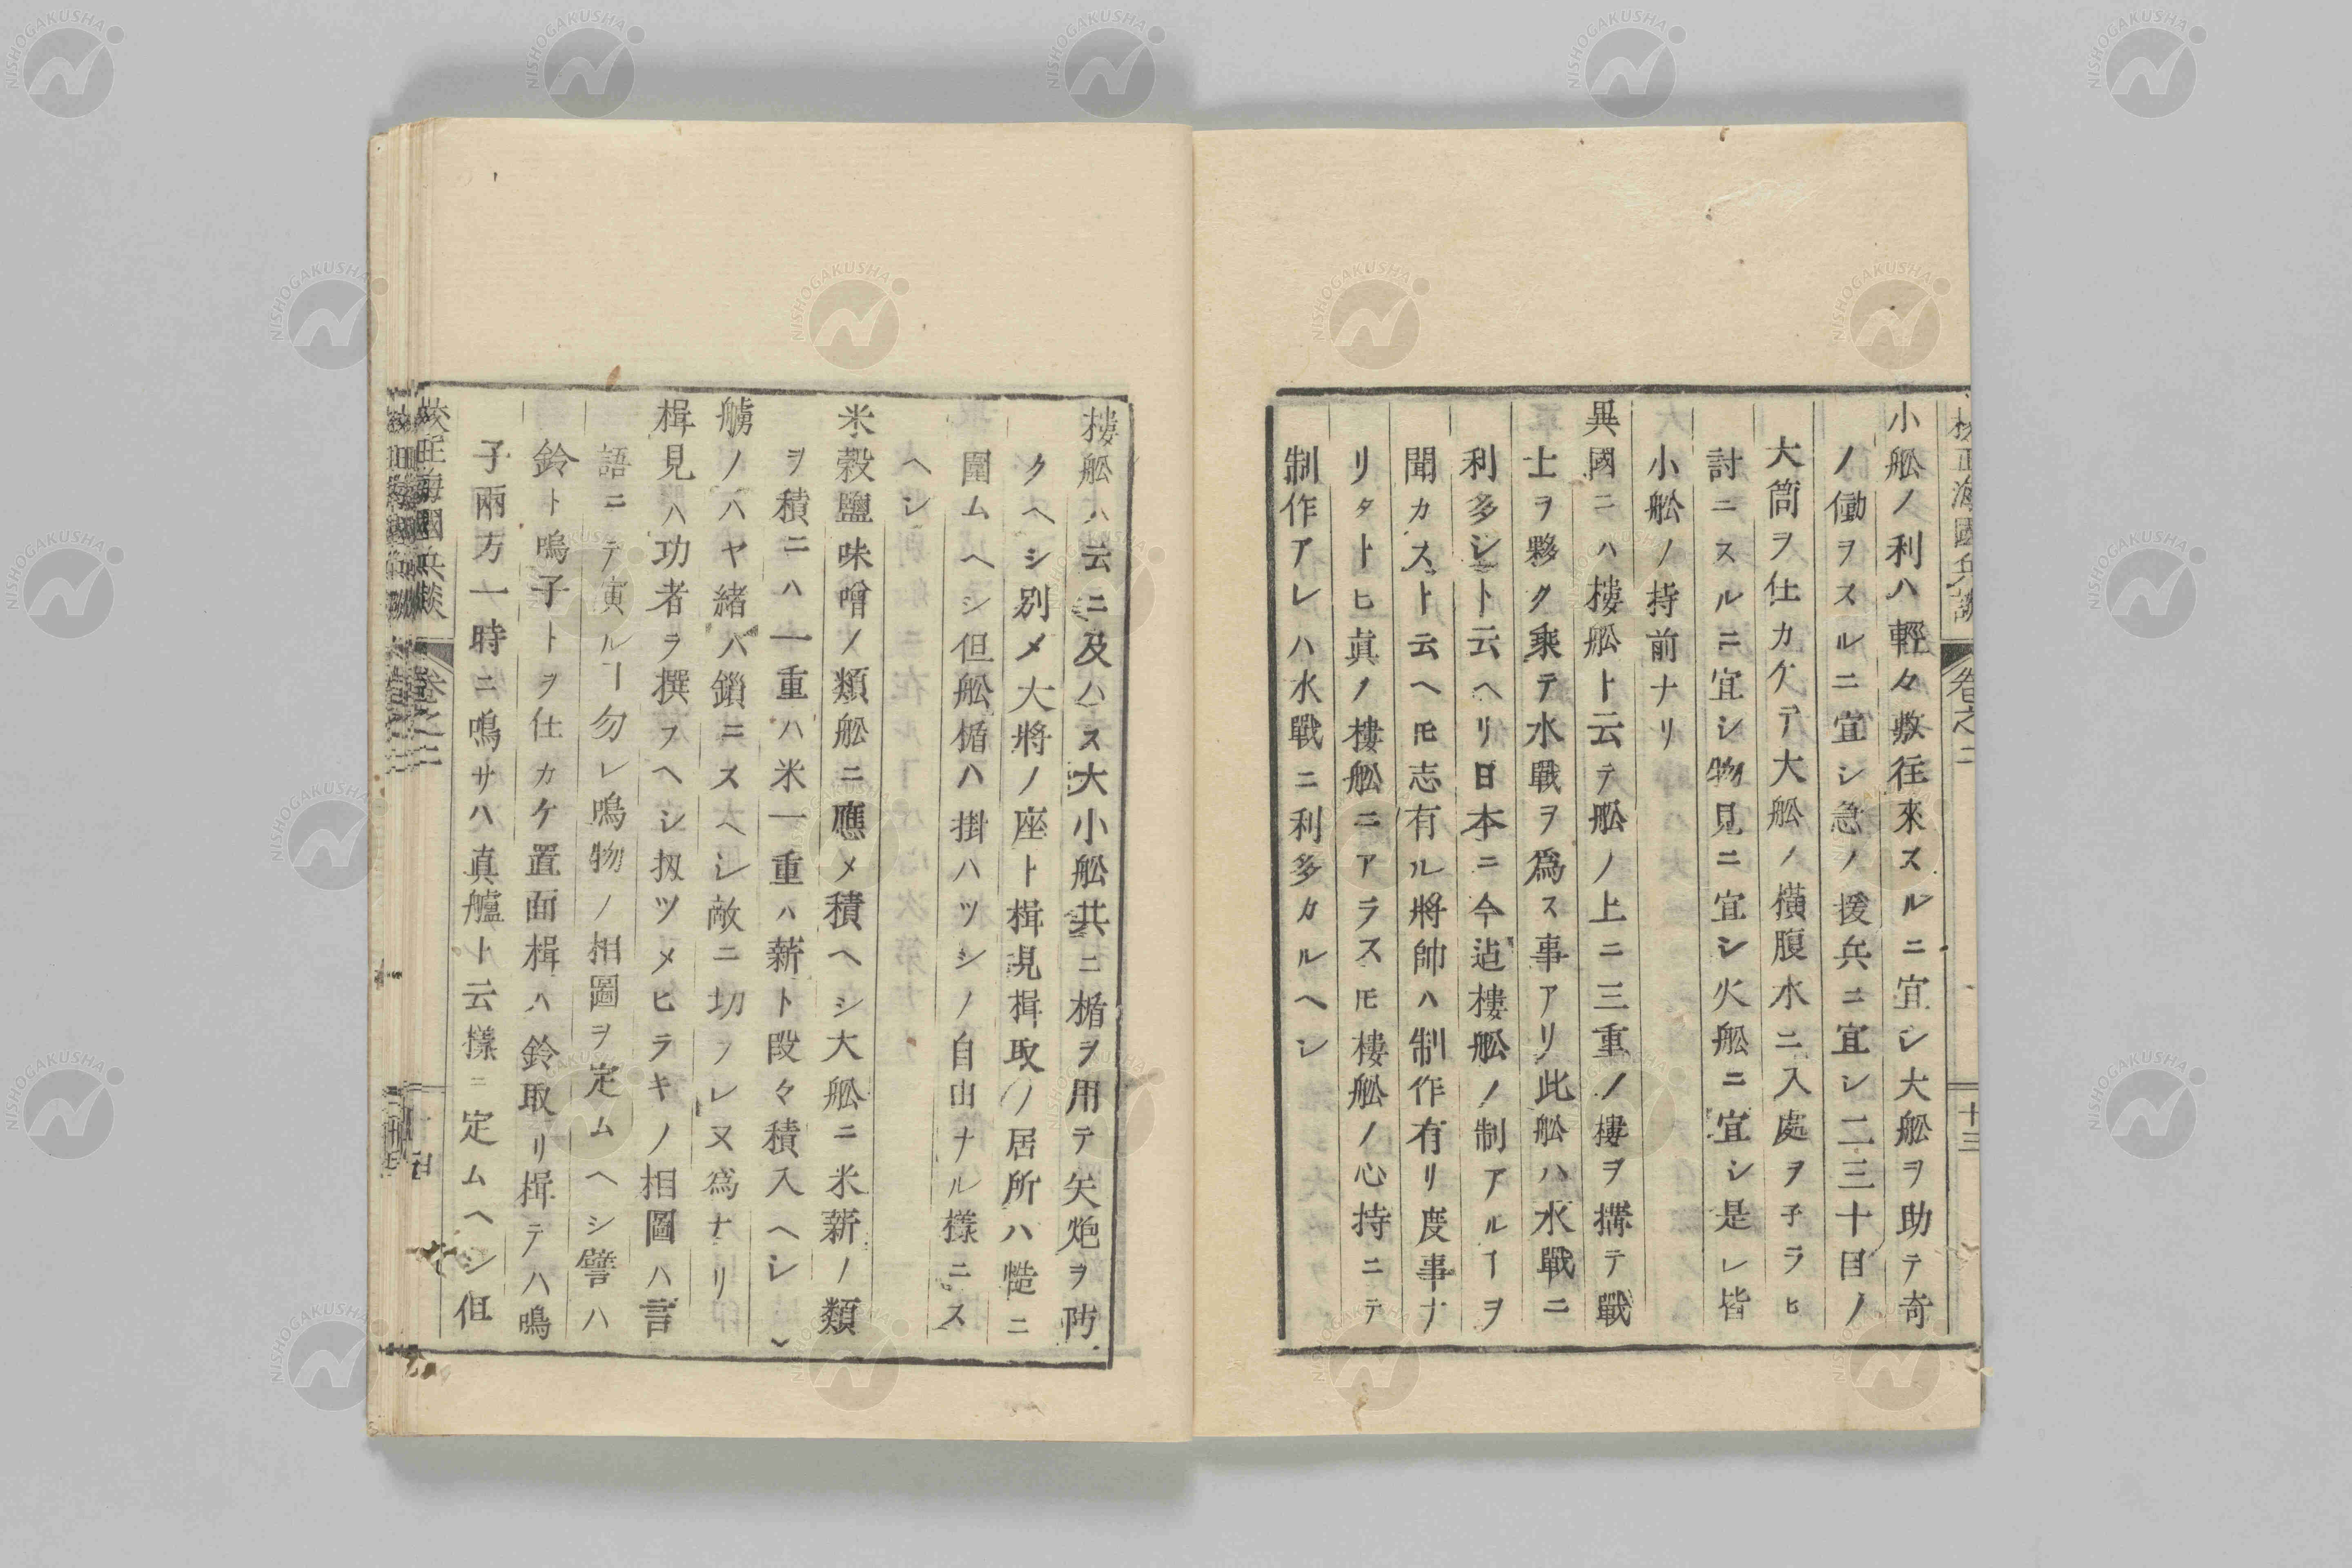 校正海國兵談 卷之二 十三
小舩ノ利ハ輕々敷往來スルニ宜シ大舩ヲ助テ奇
ノ働ヲスルニ宜シ急ノ援兵ニ宜シ二三十目ノ
大筒ヲ仕カケテ大舩ノ橫腹水ニ入處ヲ子ラヒ
討ニスルニ宜シ物見ニ宜シ火舩ニ宜シ是レ皆
小舩ノ持前ナリ
異國ニハ樓舩ト云テ舩ノ上ニ三重ノ樓ヲ搆テ戰
士ヲ夥ク乘テ水戰ヲ爲ス事アリ此舩ハ水戰ニ
利多シト云ヘリ日本ニ今迠樓舩ノ制アルヿヲ
聞カスト云ヘ𪜈志有ル將帥ハ制作有リ度事ナ
リタトヒ真ノ樓舩ニアラス𪜈樓舩ノ心持ニテ
制作アレハ水戰ニ利多カルヘシ
樓舩ハ云ニ及ハス大小舩共ニ楯ヲ用テ矢炮ヲ防
クヘシ別メ大將ノ座ト楫見楫取ノ居所ハ慥ニ
圍ムヘシ但舩楯ハ掛ハツシノ自由ナル樣ニス
ヘシ
米穀鹽味噌ノ類舩ニ應メ積ヘシ大舩ニ米薪ノ類
ヲ積ニハ一重ハ米一重ハ薪ト段々積入ヘシ
艣ノハヤ緒ハ鎻ニスヘシ敵ニ切ラレヌ爲ナリ
楫見ハ功者ヲ撰フヘシ扱ツメヒラキノ相圖ハ言
語ニテ演ルヿ勿レ鳴物ノ相圖ヲ定ムヘシ譬ハ
鈴ト鳴子トヲ仕カケ置面楫ハ鈴取リ楫テハ鳴
子兩方一時ニ鳴サハ真艫ト云樣ニ定ムヘシ但
校正海國兵談 卷之二